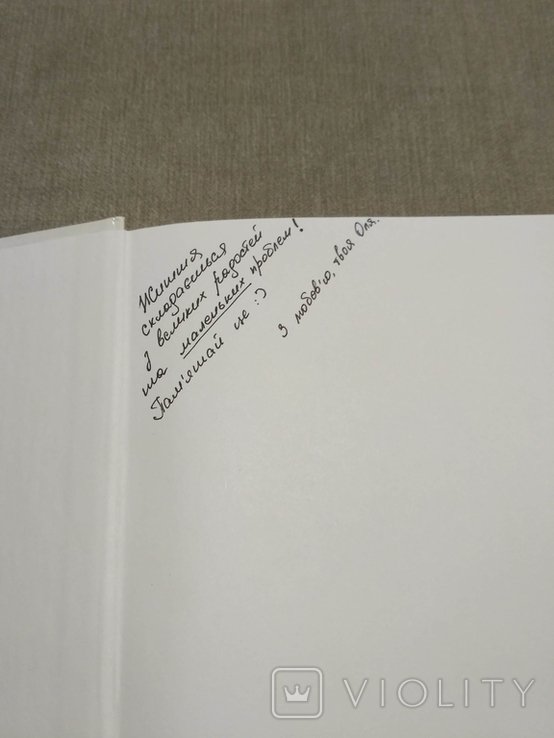 Життя
складається
з великих радостей
та маленьких проблем!
Пам'ятай це :)
З любов'ю, твоя Оля.
VIOLITY